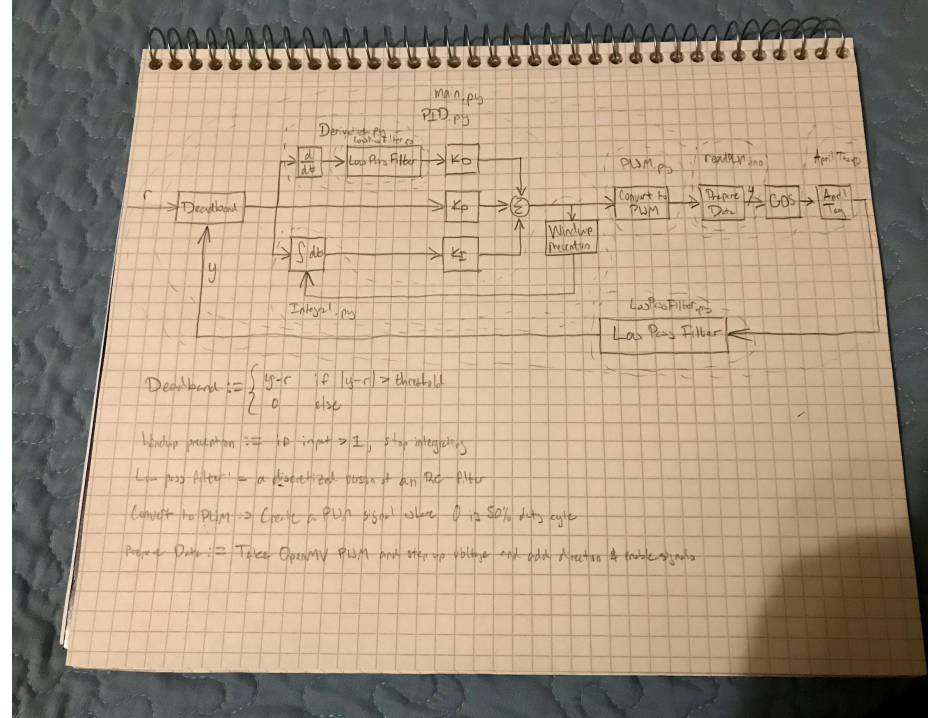 main.py
PID.py
Derivative.py
LowPassFilter.py
PWM.py
April Tag.py
d/dt
Low Pass Filter
KD
r
Deadband
KP
Σ
Convert to PWM
Prepare Data
April Tag
Windup Prevention
∫ dt
KI
y
Integral.py
LowPassFilter.py
Low Pass Filter
Deadband := { y-r if |y-r| > threshold
0 else
Windup prevention := if input > 1, stop integrating
Low pass filter := a discretized version of an RC-filter
Convert to PWM := Create a PWM signal where 0 is 50% duty cycle
Prepare Data := Take OpenMV PWM and step up voltage and add direction & enable signals